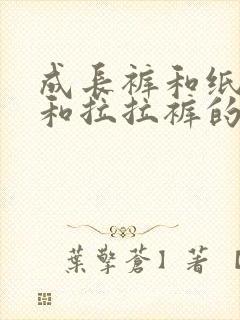 成長裤和纸
和拉拉裤的
葉擎蒼】著【